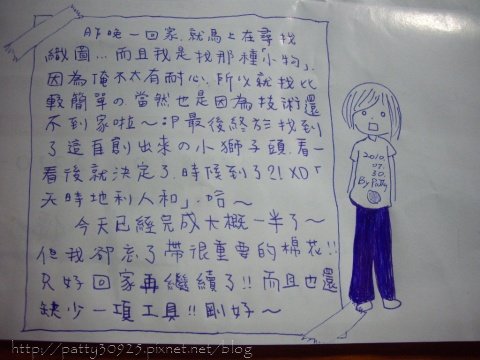 昨晚一回家.就馬上在尋找
織圖...而且我是找那種「小物」.
因為俺不太有耐心.所以就找比
較簡單の當然也是因為技術還
不到家啦~:P最後終於找到
了這自創出來の小獅子頭.看一
看後就決定了.時候到了?!XD「
天時地利人和」.哈~
今天已經完成大概一半了~
但我卻忘了帶很重要的棉花!!
只好回家再繼續了!!而且也還
缺少一項工具!!剛好~
2010.
07.
30.
By Patty
http://patty30925.pixnet.net/blog